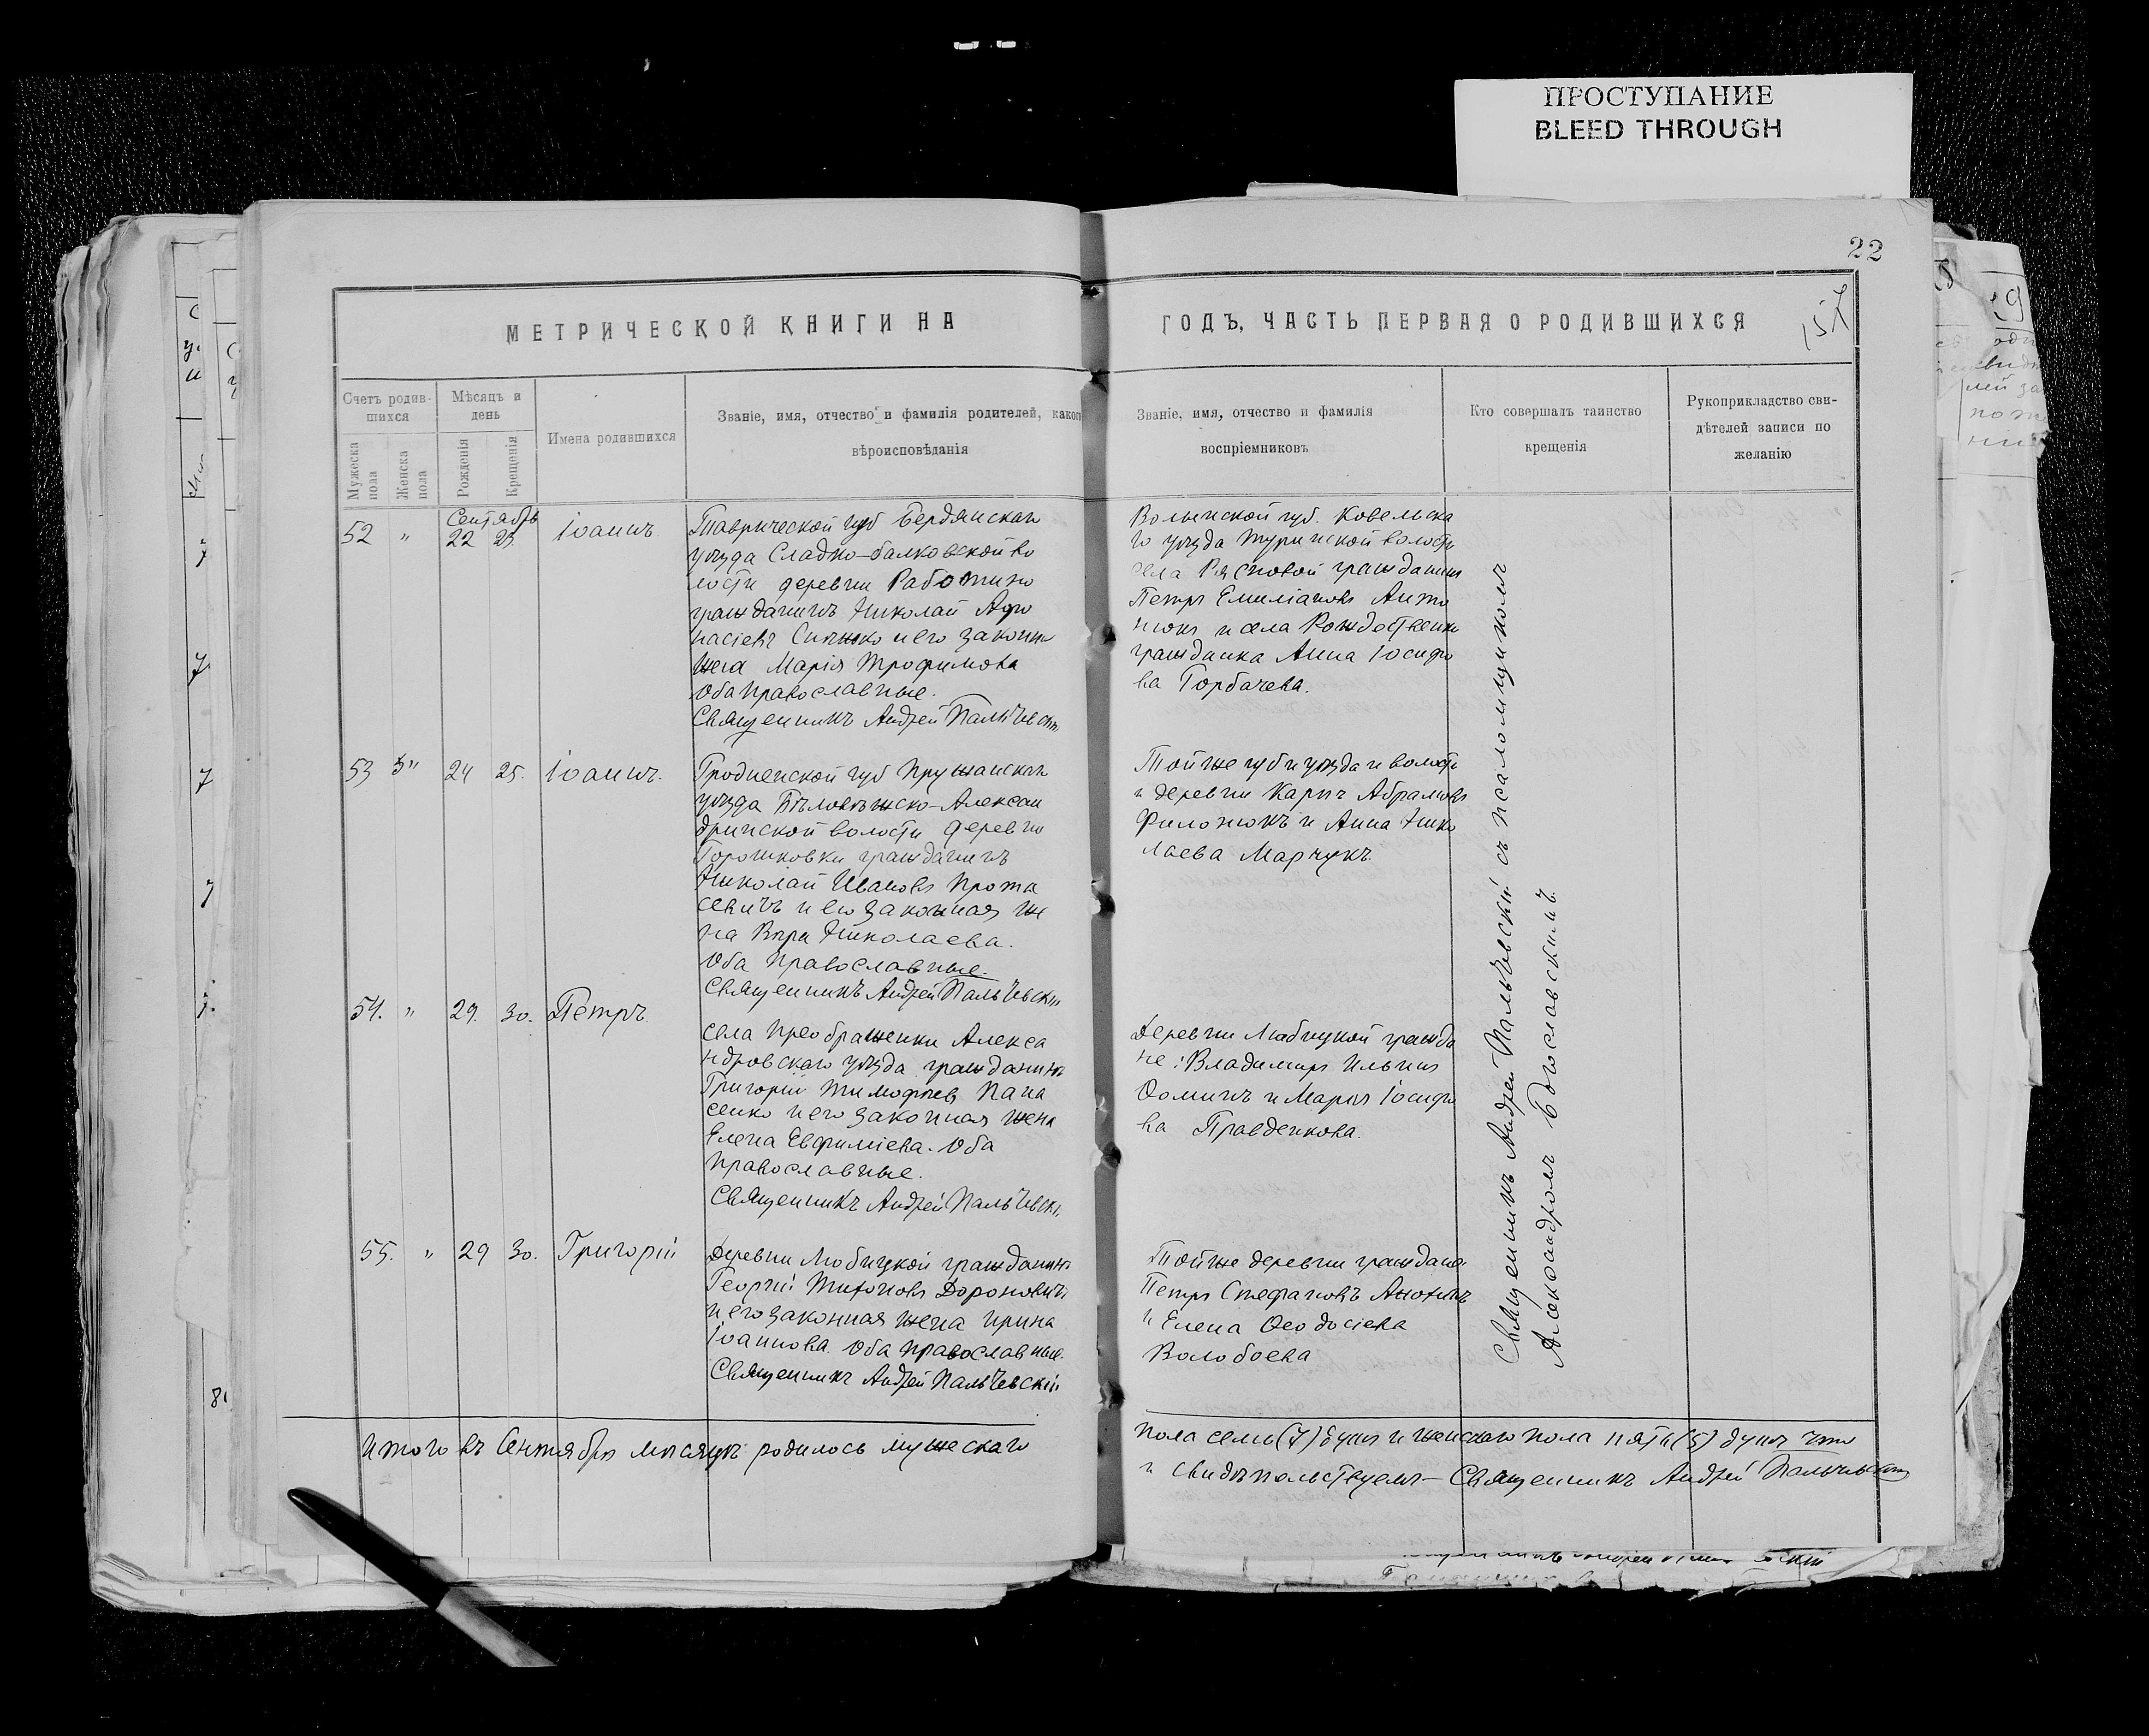 ПРОСТУПАНИЕ
BLEED THROUGH
22
157
МЕТРИЧЕСКОЙ КНИГИ НА
ГОДЪ, ЧАСТЬ ПЕРВАЯ О РОДИВШИХСЯ
Счетъ родив-
шихся
Мужеска пола
Женска пола
Мѣсяцъ и
день
Рожденія
Крещенія
Имена родившихся
Званіе, имя, отчество и фамилія родителей, какого
вѣроисповѣданія
Званіе, имя, отчество и фамилія
воспріемниковъ
Кто совершалъ таинство
крещенія
Рукоприкладство сви-
дѣтелей записи по
желанію
Сентябрь
52 " 22 25 Іоаннъ
Таврической губ Бердянскаго
уѣзда Сладко-балковской во
лости деревни Работино
гражданинъ Николай Афо
насіевъ и его законн
жена Марія Трофимова
Оба православные.
Священникъ Андрей Пальчевскій
Волынской губ. Ковельска
го уѣзда Турийской волости
села Рясновой гражданинъ
Петръ Емиліановъ Анто
нюкъ и села Рождественки
гражданка Анна Іосифо
ва Горбачева.
53 " 24 25. Іоаннъ.
Гродненской губ Пружанскаго
уѣзда Бѣловѣжско-Алексан
дрийской волости деревни
Горошковки гражданинъ
Николай Ивановъ Прота
севичъ и его законная же
на Вѣра Николаева.
Оба православные.
Священникъ Андрей Пальчевскій
Той же губ и уѣзда и волости
и деревни Карпъ Абрамовъ
Филонюкъ и Анна Нико
лаева Марчукъ.
54. " 29. 30. Петръ
села Преображенки Алекса
ндровскаго уѣзда гражданинъ
Григорій Тимофѣев Пана
сенко и его законная жена
Елена Евфиміева. Оба
православные.
Священникъ Андрей Пальчевскі
Деревни Любицкой гражда
не: Владимиръ Ильинъ
Ѳоминъ и Марія Іосифо
ва Правденкова.
55. " 29 30. Григорій
Деревни Любицкой гражданинъ
Георгій Тихоновъ Дороновичъ
и его законная жена Ирина
Іоаннова. Оба православные.
Священникъ Андрей Пальчевскій
Той же деревни граждане
Петръ Стефановъ Анохинъ
и Елена Ѳеодосіева
Волобоева
Священникъ Андрей Пальчевскій съ псаломщикомъ
Александромъ Богословскимъ.
Итого въ Сентябрѣ мѣсяцѣ родилось мужескаго
пола семь (7) душъ и женскаго пола пять (5) душъ что
и свидѣтельствуемъ — Священникъ Андрей Пальчевскій